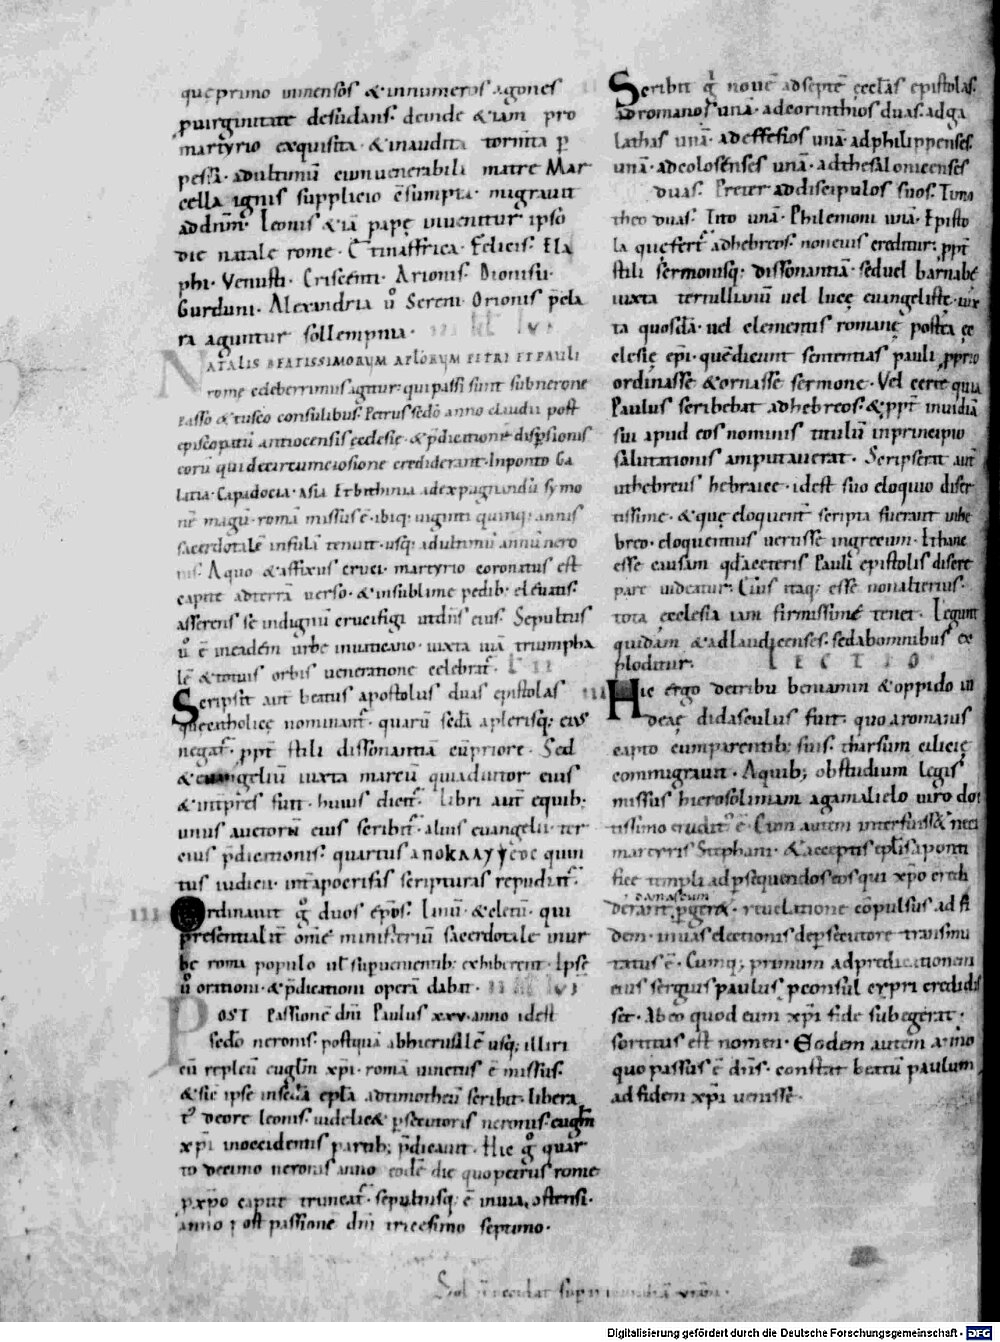 que primo inmensos & innumeros agones
p uirginitate desudans. deinde & iam pro
martyrio exquisita & inaudita tormta p
pessa. adultimu cumuenerabili matre Mar
cella ignis supplicio esumpta. migrauit
addnm. Leonis & ia papę iuuenitur ipso
die natale rome. Et inaffrica. Felicis. Ela
phi. Venusti. Criscenti. Arionis. Dionisii.
Gurduni. Alexandria uo Sereni. Orionis pcla
ra aguntur sollempnia.
NATALIS BEATISSIMORUM APLORUM PETRI ET PAULI
rome celeberrimus agitur. qui passi sunt subnerone
basso & tusco consulibus. Petrus sedo anno claudii post
episcopatu antiocensis ecclesię & pdicatione dispersionis
coru qui decircumcisione crediderant. Inponto Ga
latia. Capadocia. asia Et bithinia adexpugnandu symo
ne magu. roma missus e. ibiq; uiginti quinq; annis
sacerdotale infula tenuit. usq; adultimu annu nero
nis. A quo & affixus cruci. martyrio coronatus est
capite adterra uerso. & insublime pedib; eleuatis.
asserens se indignu crucifigi utdns eius. Sepultus
uo e ineadem urbe inuaticano. iuxta uia triumpha
le & totius orbis ueneratione celebrat.
Scripsit aut beatus apostolus duas epistolas
quecatholicę nominant. quaru seda aplerisq; eius
negat. ppt stili dissonantia cupriore. Sed
& euangeliu iuxta marcu quiauditor eius
& intpres fuit. huius dicit. libri aut equib;
unus auctoru eius scribit. alius euangelii. ter
cius pdicationis. quartus ΑΠΟΚΛΛΥΥΕΟC quin
tus iudicii. int apocrifas scripturas repudiat.
III Ordinauit g duos epos. linu. & cletu. qui
presentialit ome ministeriu sacerdotale inur
be roma populo ut supuenientib; exhiberent. Ipse
uo orationi. & pdicationi opera dabat.
POST Passione dni Paulus xxv. anno idest
sedo neronis. postqua abhierusale usq; illiri
cu repleu euglm xpi. roma uinctus e missus.
& sic ipse inseda epla adtimotheu scribit. libera
t decore leonis. uidelic& psecutoris neronis. euglm
xpi inoccidentis partib; pdicauit. Hic g quar
to decimo neronis anno eode die quopetrus rome
p xpo capite truncat. sepultusq; e inuia ostensi.
anno post passione dni tricesimo septimo.
Scribit g noue adsepte ęcclas epistolas.
adromanos una. adcorinthios duas. adga
lathas una. adeffesios una. adphilippenses.
una. adcolosenses una. adthesalonicenses
duas. Preter addiscipulos suos. Timo
theo duas. Tito una. Philemoni una. Episto
la quefert adhebreos. noneius creditur. ppt
stili sermonisq; dissonantia. seduel barnabę
iuxta tertulliuiu uel lucę euangelistę. iux
ta quosda. uel clementis romanę postea ęc
clesię epi. quedicunt sententias pauli pprio
ordinasse & ornasse sermone. Vel certe quia
Paulus scribebat adhebreos. & ppt inuidia
sui apud eos nominis titulu inprincipio
salutationis amputauerat. Scripserat aut
uthebreus hebraice. idest suo eloquio diser
tissime. & quę eloquent scripta fuerant inhe
breo. eloquentius uertisse ingrecum. Et hanc
esse causam qdaceteris Pauli epistolis discre
pare uideatur. Cuius itaq; esse nonalterius.
tota ęcclesia iam firmissime tenet. Legunt
quidam & adlaudicenses. sedabomnibus ex
ploditur. LECTIO
III Hic ergo detribu beniamin & oppido iu
deaę didasculus fuit. quo aromanis
capto cumparentib; suis. tharsum cilicię
commigrauit. Aquib; obstudium legis
missus hierosolimam agamalielo uiro doc
tissimo erudit e. Cum autem interfuiss& neci
martyris Stephani. & acceptis eplis aponti
fice templi adpsequendos eos qui xpo credi
damascum
derant pger&. reuelatione compulsus ad fi
dem. inuas electionis depersecutore transmu
tatus e. Cumq; primum adpredicationem
eius sergius paulus pconsul cypri credidis
set. Ab eo quod eum xpi fide subegerat.
sortitus est nomen. Eodem autem anno
quo passus e dns. constat beatu paulum
ad fidem xpi uenisse.
Digitalisierung gefördert durch die Deutsche Forschungsgemeinschaft - DFG